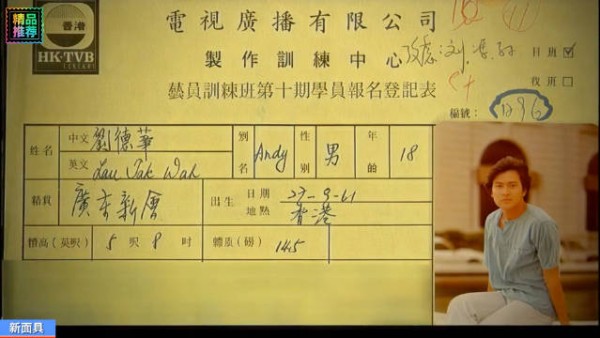 精品
推荐
香港
HK-TVB
電視廣播有限公司
製作訓練中心
藝員訓練班第十期學員報名登記表
日班☑
夜班□
編號：
1296
姓名
中文 劉德華
英文 Lau Tak Wah
別名 Andy
性別 男
年齡 18
籍貫 廣東新會
出生 日期 27-9-61
地點 香港
體高(英呎) 5 呎 8 吋
體重(磅) 145
新面具